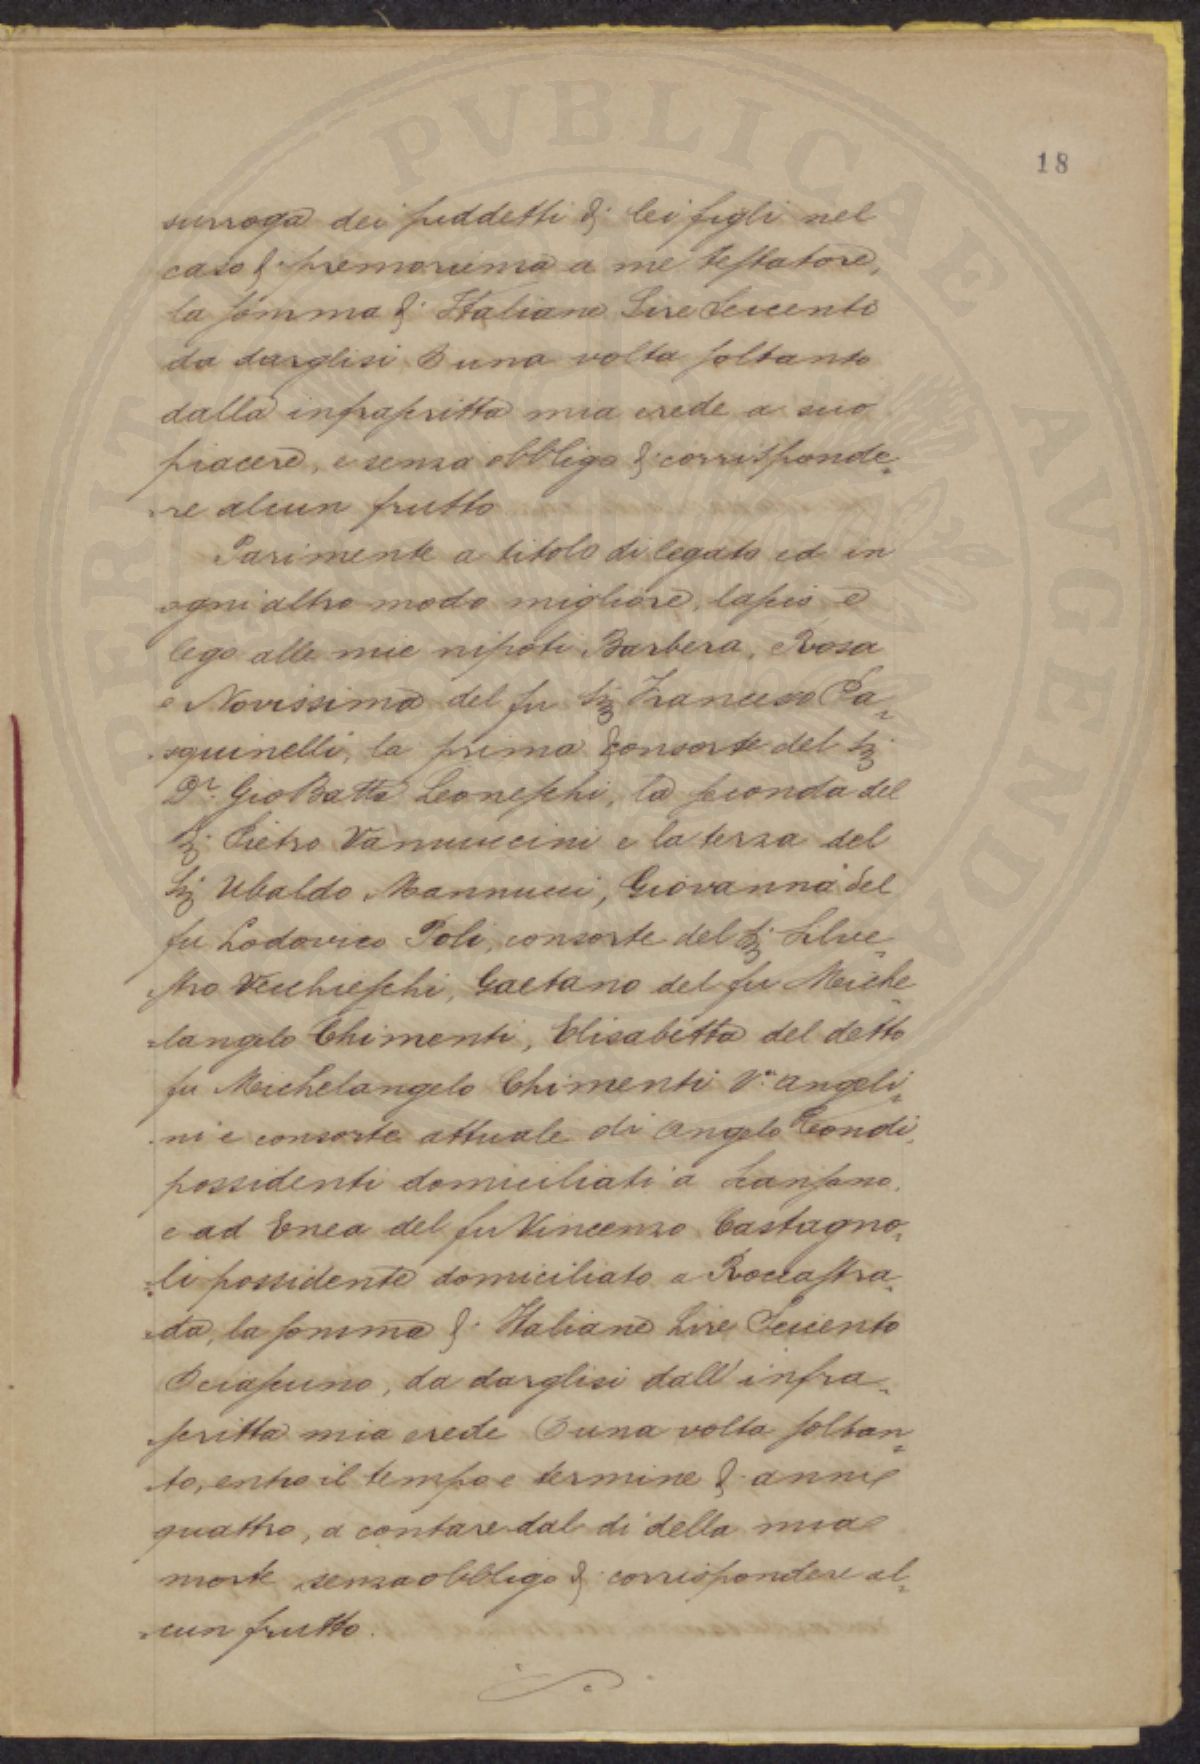 PVBLICAE AVGENDAE PERITIAE
18
surroga dei suddetti di lei figli nel
caso di premorienza a me testatore,
la somma di Italiane Lire Seicento
da darglisi p una volta soltanto
dalla infrascritta mia erede a suo
piacere, e senza obbligo di corrisponde=
=re alcun frutto
Parimente a titolo di legato ed in
ogni altro modo migliore, lascio e
lego alle mie nipoti Barbera, Rosa
e Novissima del fu Sig Francesco Pa=
squinelli, la prima consorte del Sig
Dr. GioBatta Leoneschi, la seconda del
Sig. Pietro Vannuccini e la terza del
Sig Ubaldo Mannucci, Giovanna del
fu Lodovico Poli, consorte del Sig Silve=
stro Vecchieschi, Gaetano del fu Miche=
=langelo Chimenti, Elisabetta del detto
fu Michelangelo Chimenti Va. Angeli=
ni e consorte attuale di Angelo Tondi,
possidenti domiciliati a Scansano,
e ad Enea del fu Vincenzo Castagno=
=li possidente domiciliato a Roccastra=
=da, la somma di Italiane Lire Seicento
p ciascuno, da darglisi dall'infra=
scritta mia erede p una volta soltan=
to, entro il tempo e termine di anni
quattro, a contare dal dì della mia
morte, senza obbligo di corrispondere al=
=cun frutto.